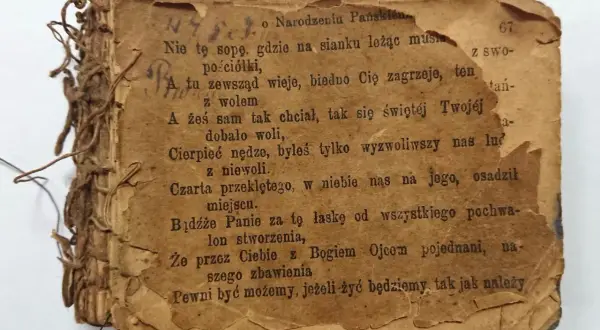 o Narodzeniu Pańskiem 67
Nie tę sopę, gdzie na sianku leżąc
z swo-
pościółki,
A tu zewsząd wieje, biedno Cię zagrzeje, ten
z wołem
A żeś sam tak chciał, tak się świętéj Twojéj
dobało woli,
Cierpieć nędze, byleś tylko wyzwoliwszy nas
z niewoli.
Czarta przeklętego, w niebie nas na jego, osadził
miejscu.
Bądźże Panie za tę łaskę od wszystkiego pochwa-
lon stworzenia,
Że przez Ciebie z Bogiem Ojcem pojednani, na-
szego zbawienia
Pewni być możemy, jeżeli żyć będziemy, tak jak należy